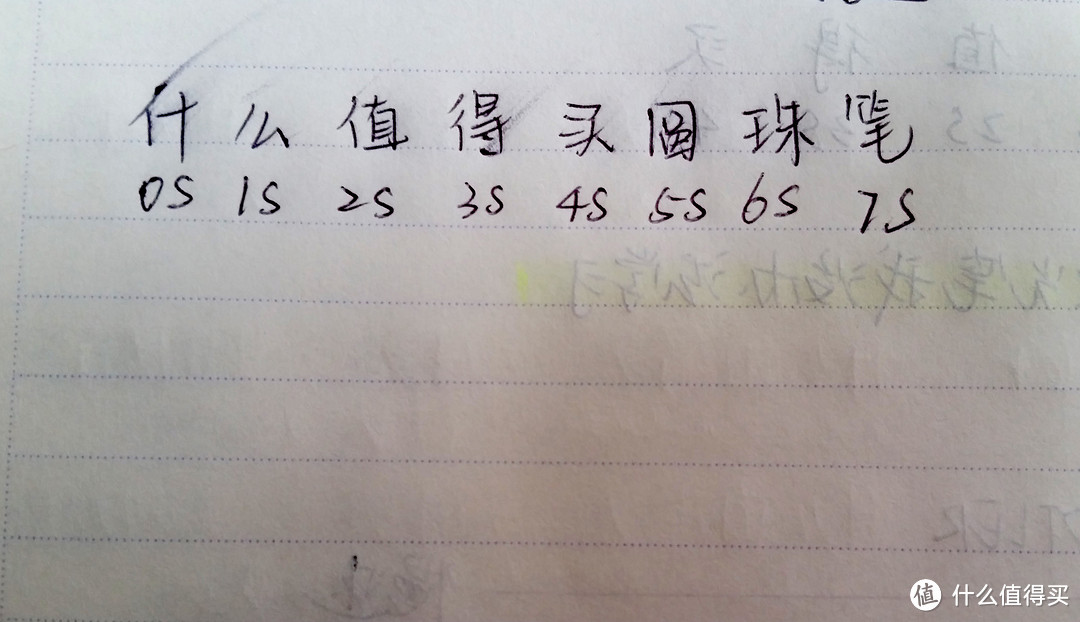 什么值得买圆珠笔
0S 1S 2S 3S 4S 5S 6S 7S
值 什么值得买